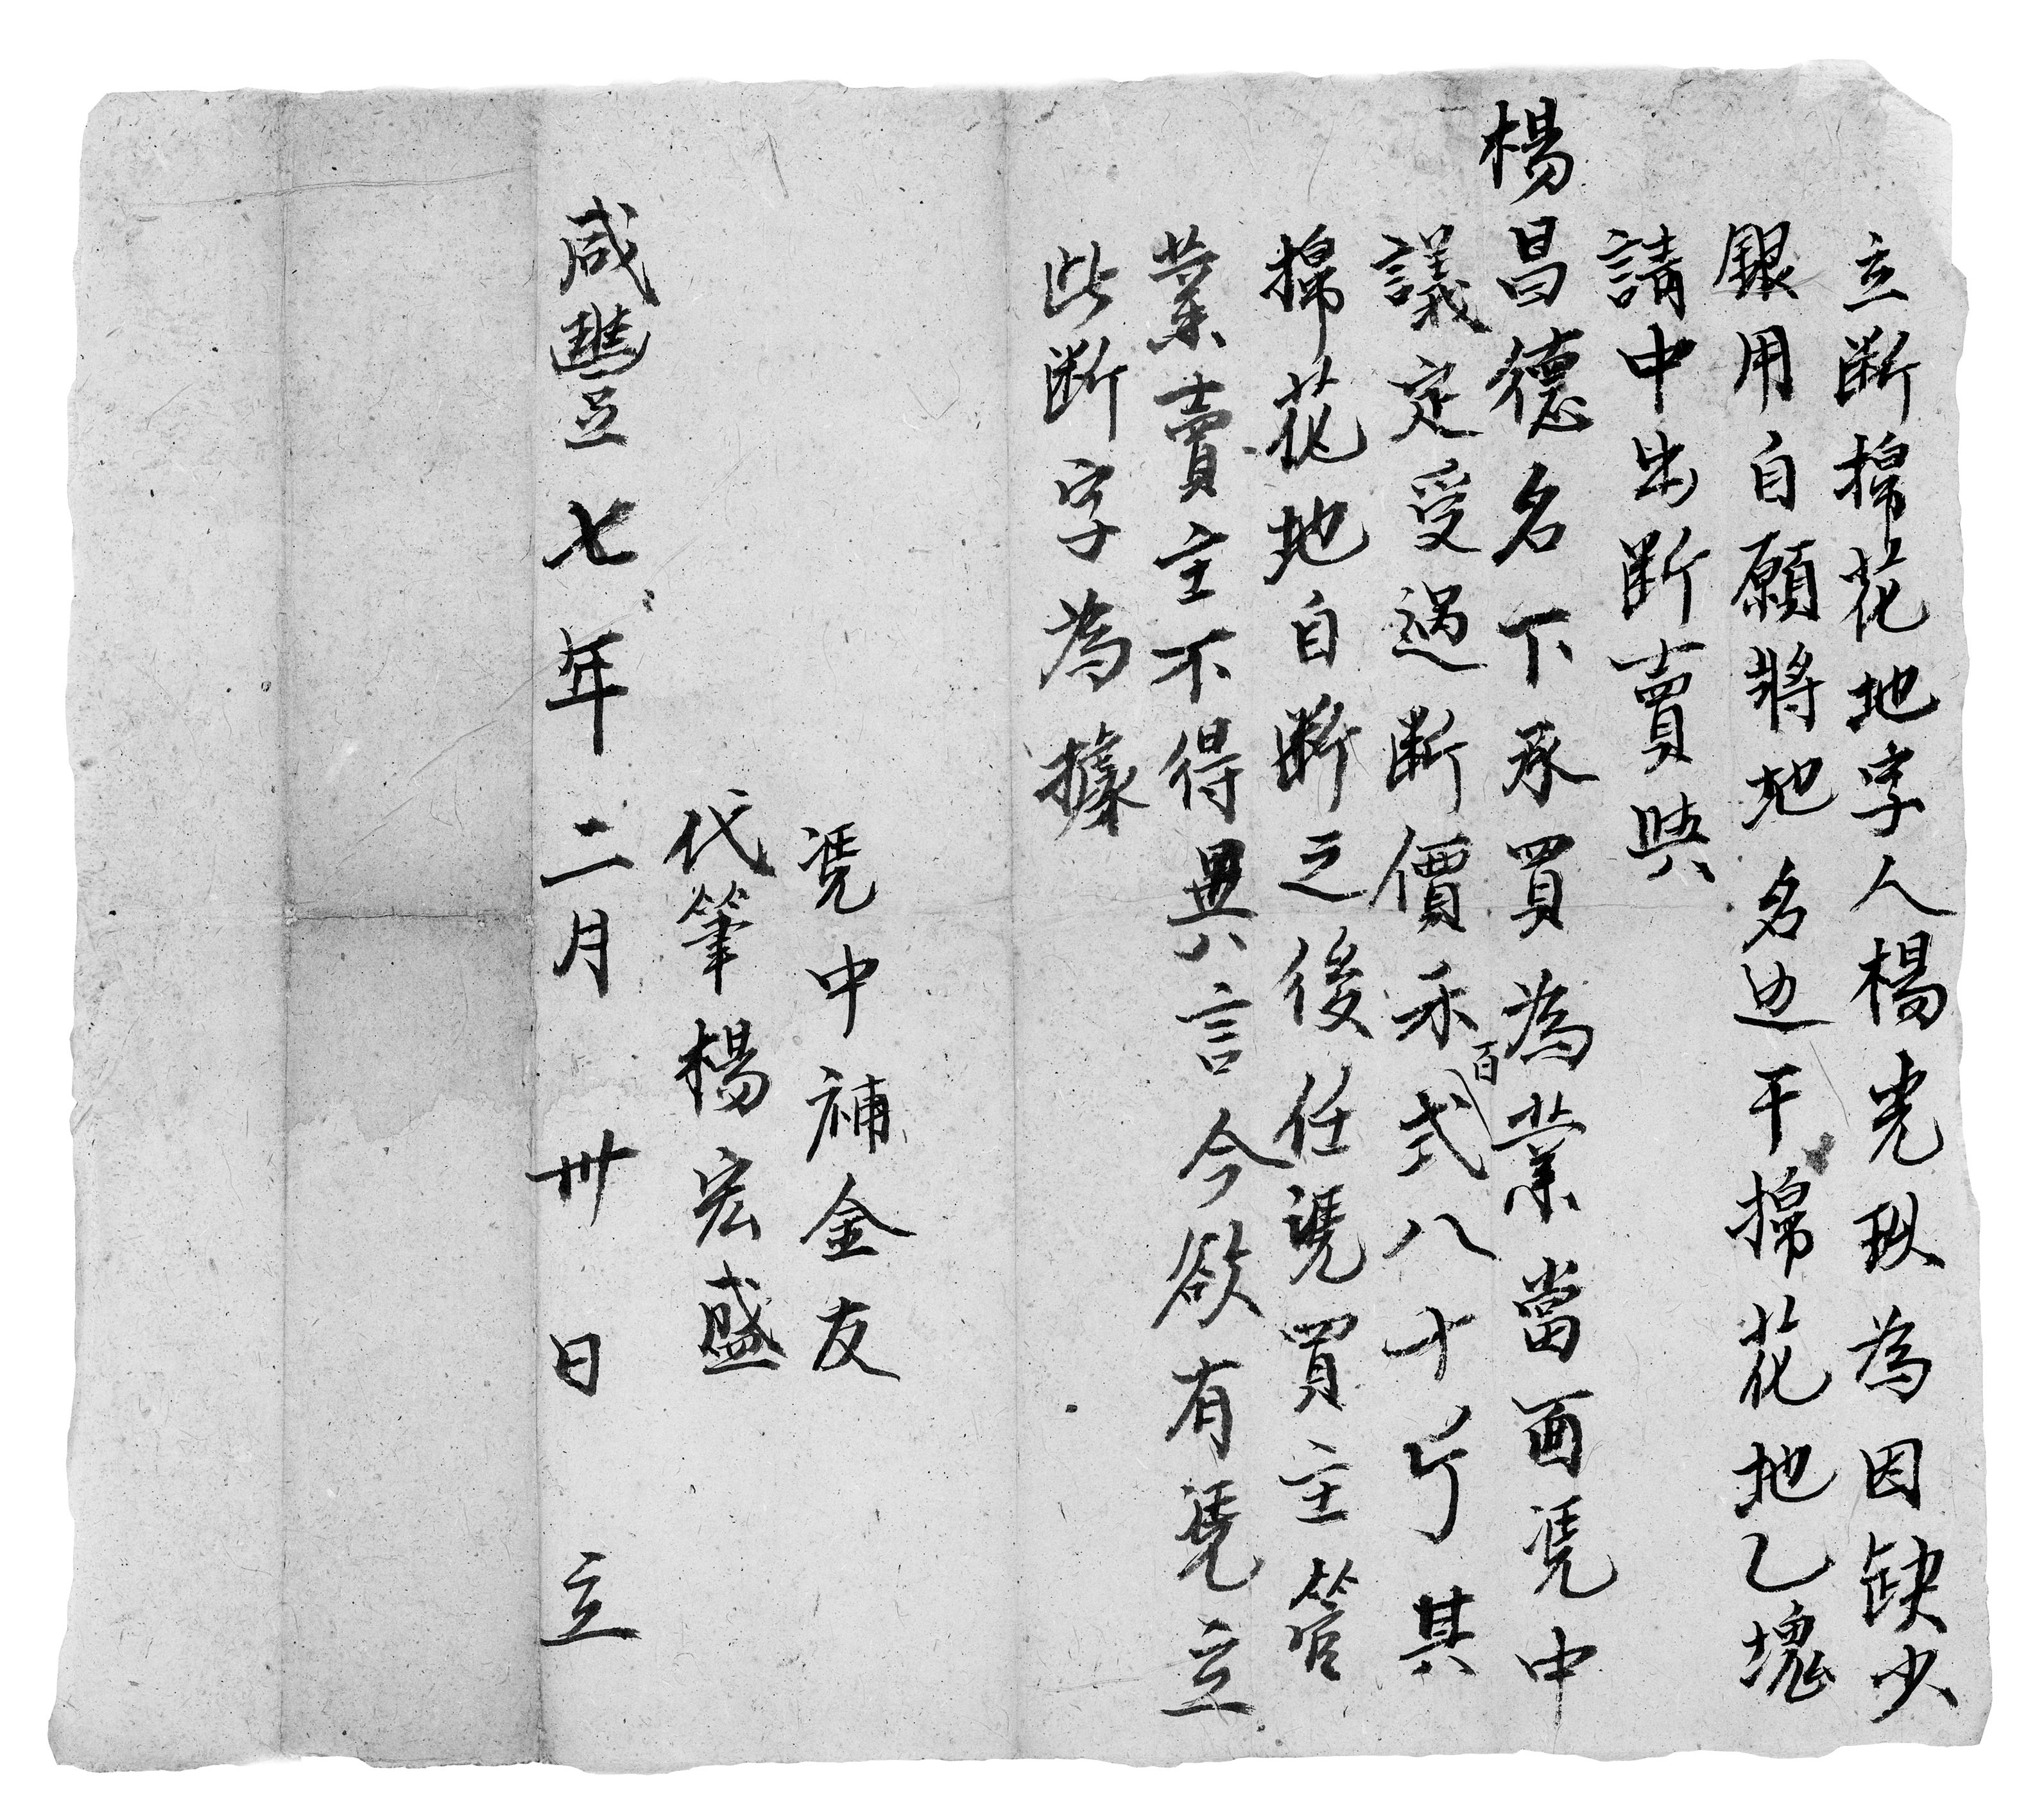 立断棉花地字人楊光玖為因缺少
銀用自願將地名边干棉花地乙塊
請中出断賣與
楊昌德名下承買為業當面凴中
議定受過断價禾弍百八十斤其
棉花地自断之後任凴買主管
業賣主不得異言今欲有凴立
此断字為據
凴中補金友
代筆楊宏盛
咸豐七年二月卅日立